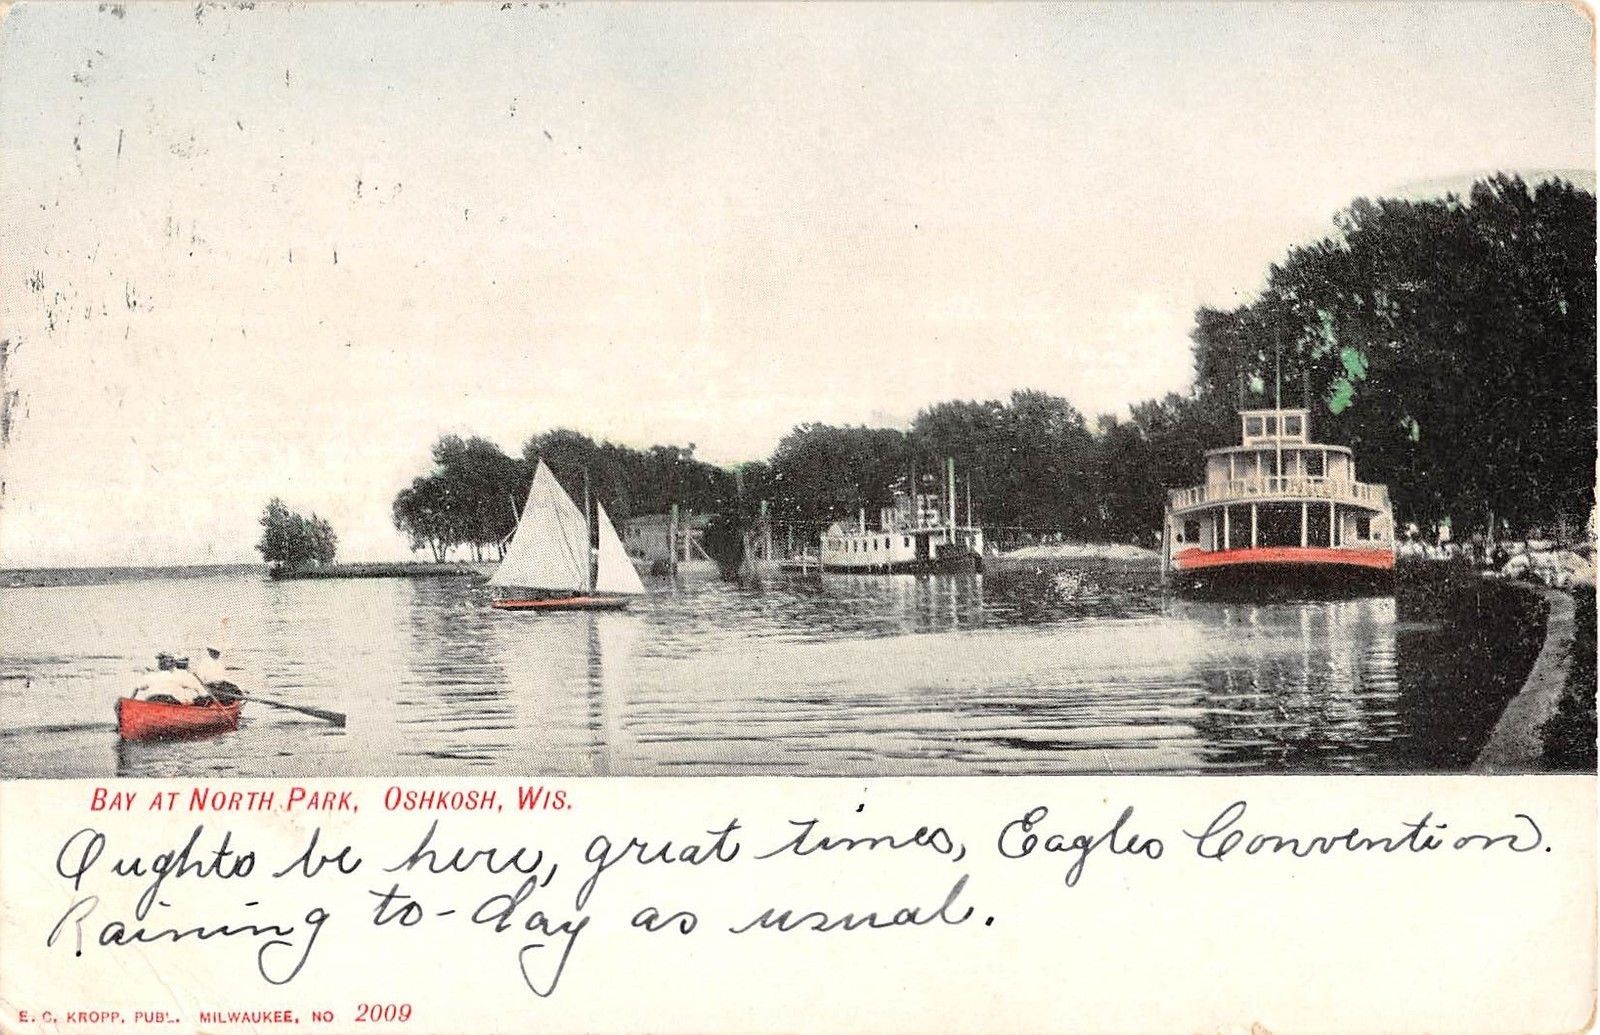 BAY AT NORTH PARK, OSHKOSH, WIS.
Ought to be here, great times, Eagles Convention.
Raining to-day as usual.
E. C. KROPP, PUBL. MILWAUKEE, NO 2009